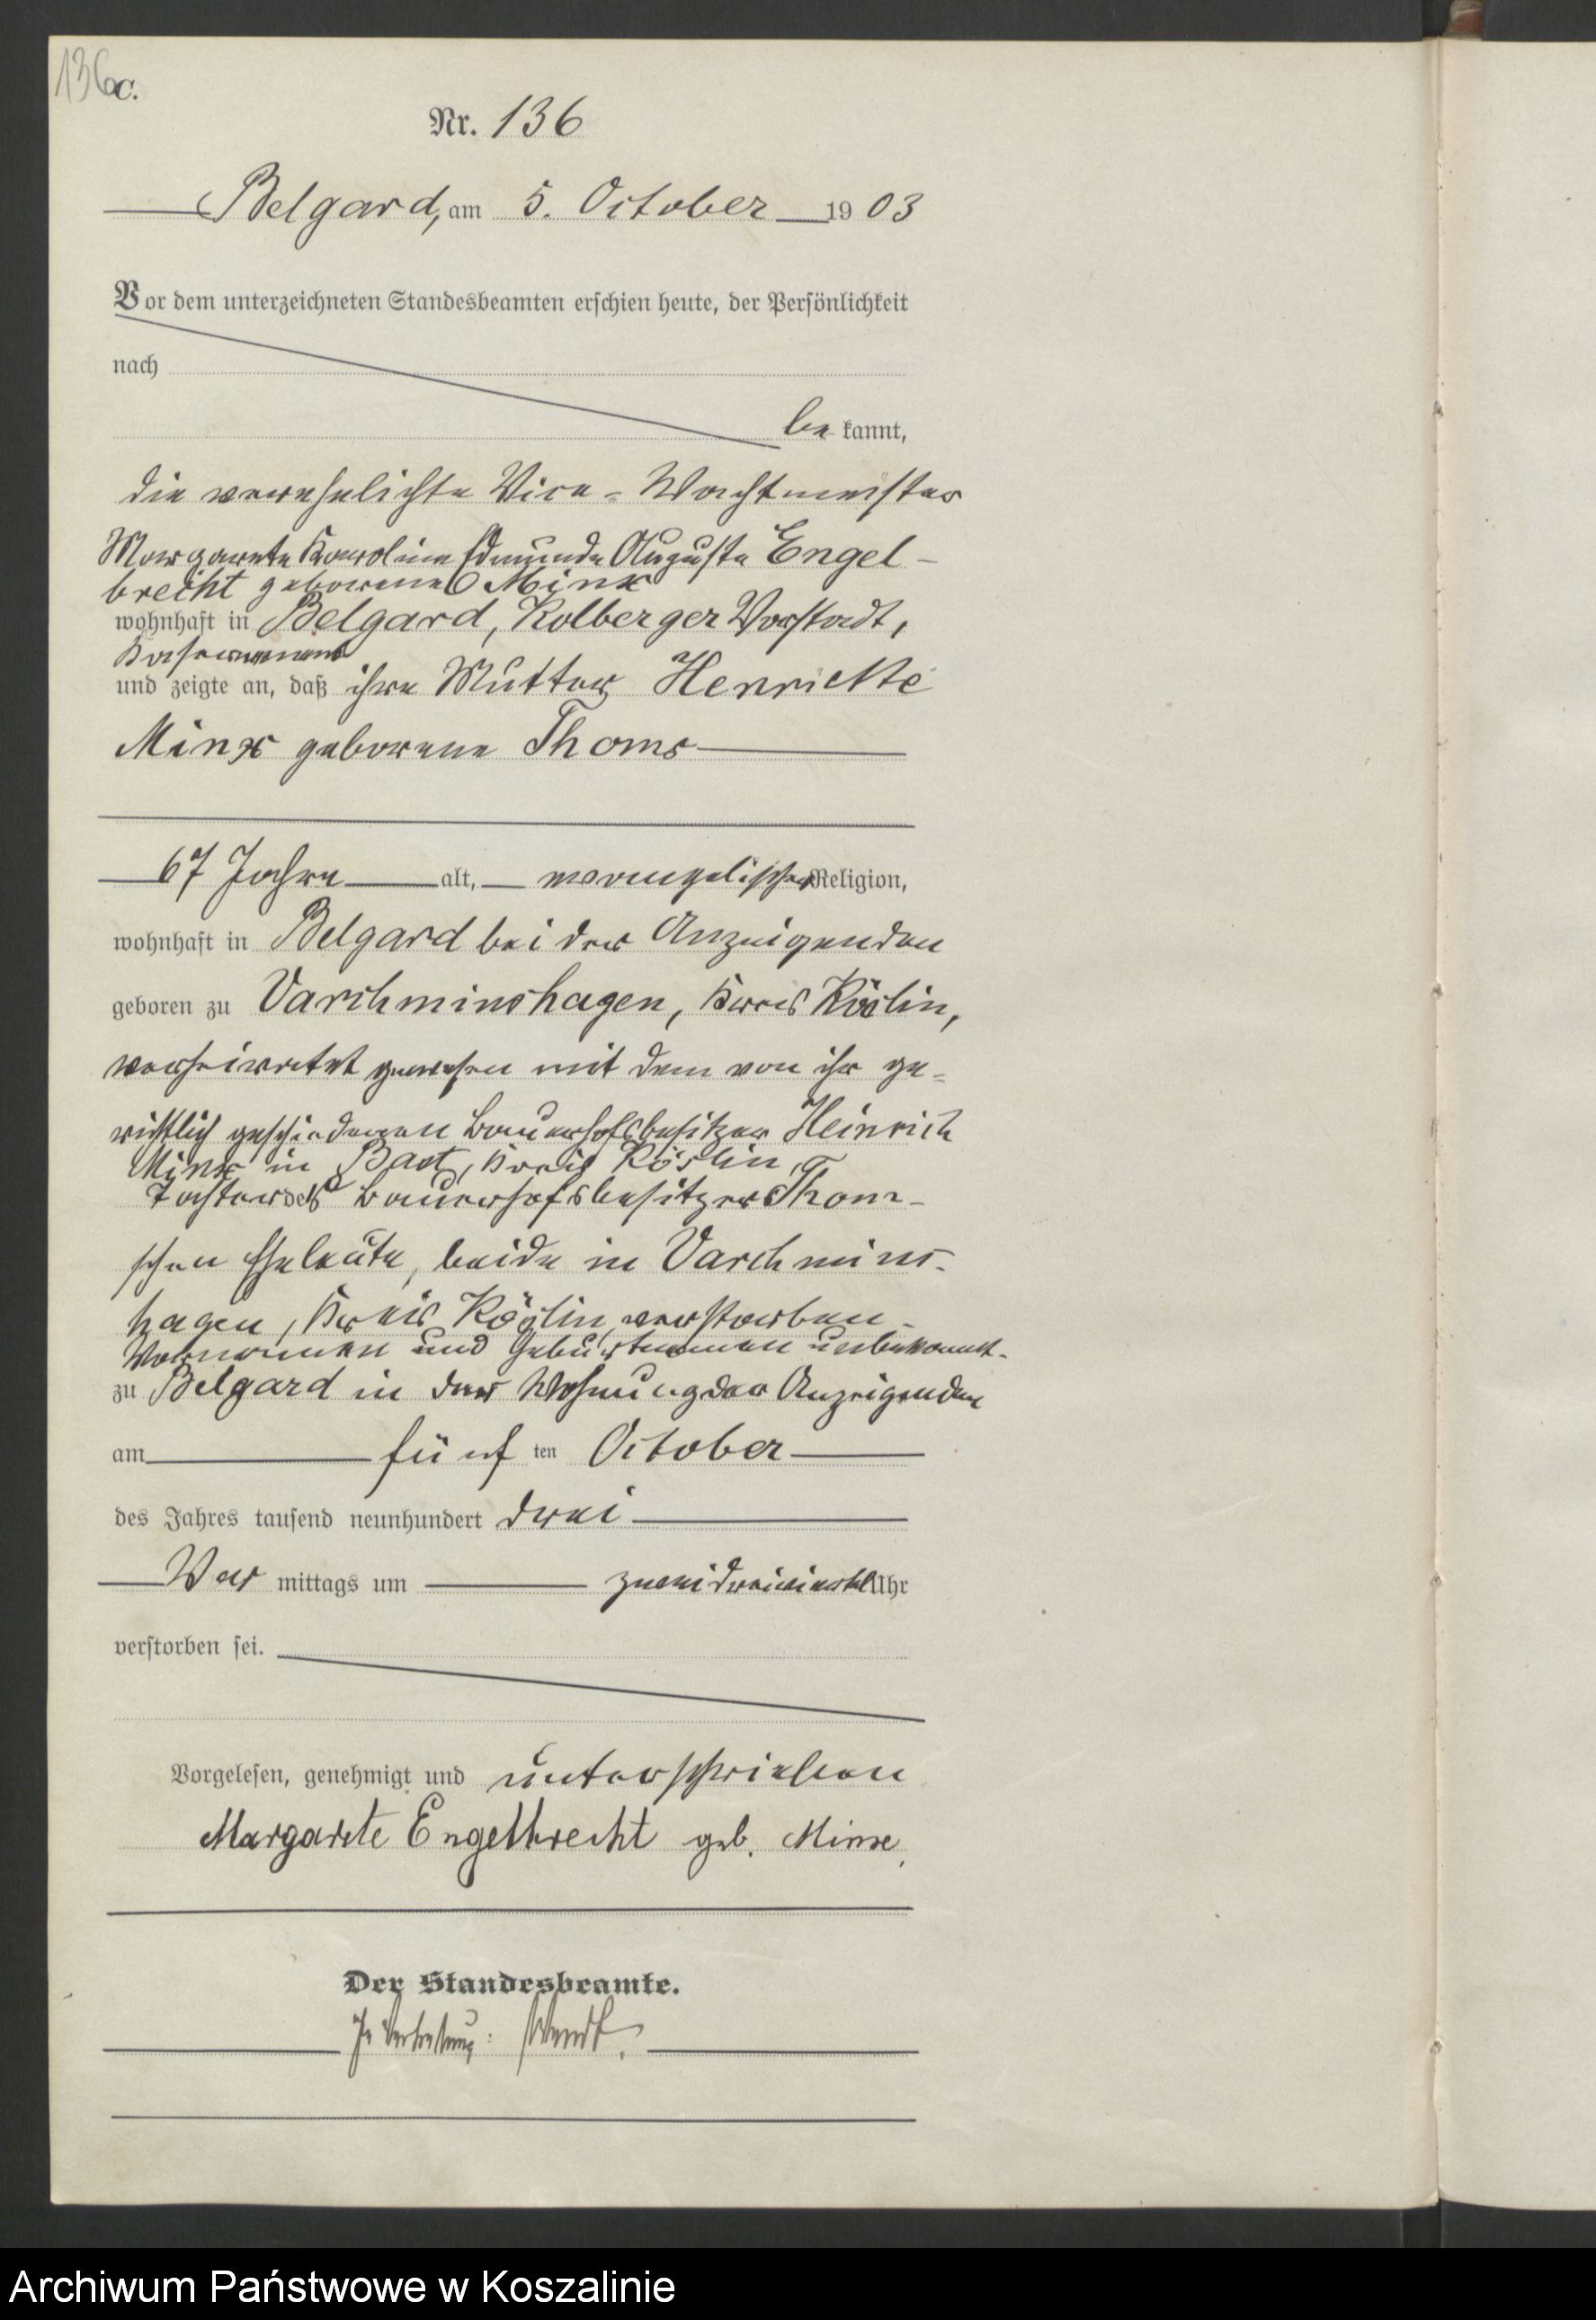 136
c.
Nr. 136
Belgard, am 5. October 1903
Vor dem unterzeichneten Standesbeamten erschien heute, der Persönlichkeit
nach
be kannt,
die verehelichte Vice-Wachtmeister
Margarete Karoline Edmunde Auguste Engel-
brecht geborene Minx
wohnhaft in Belgard, Kolberger Vorstadt,
und zeigte an, daß ihre Mutter Henriette
Minx geborene Thoms
67 Jahre alt, evangelischer Religion,
wohnhaft in Belgard bei der Anzeigenden
geboren zu Varchminshagen, Kreis Köslin,
verheiratet gewesen mit dem von ihr ge-
richtlich geschiedenen Bauerhofsbesitzer Heinrich
Minx in Bast, Kreis Köslin,
Tochter der Bauerhofsbesitzer Thom-
schen Eheleute, beide in Varchmins-
hagen, Kreis Köslin, verstorben
Vornamen und Geburtsnamen unbekannt.
zu Belgard in der Wohnung der Anzeigenden
am fünf ten October
des Jahres tausend neunhundert drei
Vor mittags um zweidreiviertel Uhr
verstorben sei.
Vorgelesen, genehmigt und unterschrieben
Margarete Engelbrecht geb. Minx.
Der Standesbeamte.
In Vertretung: Wendt.
Archiwum Państwowe w Koszalinie